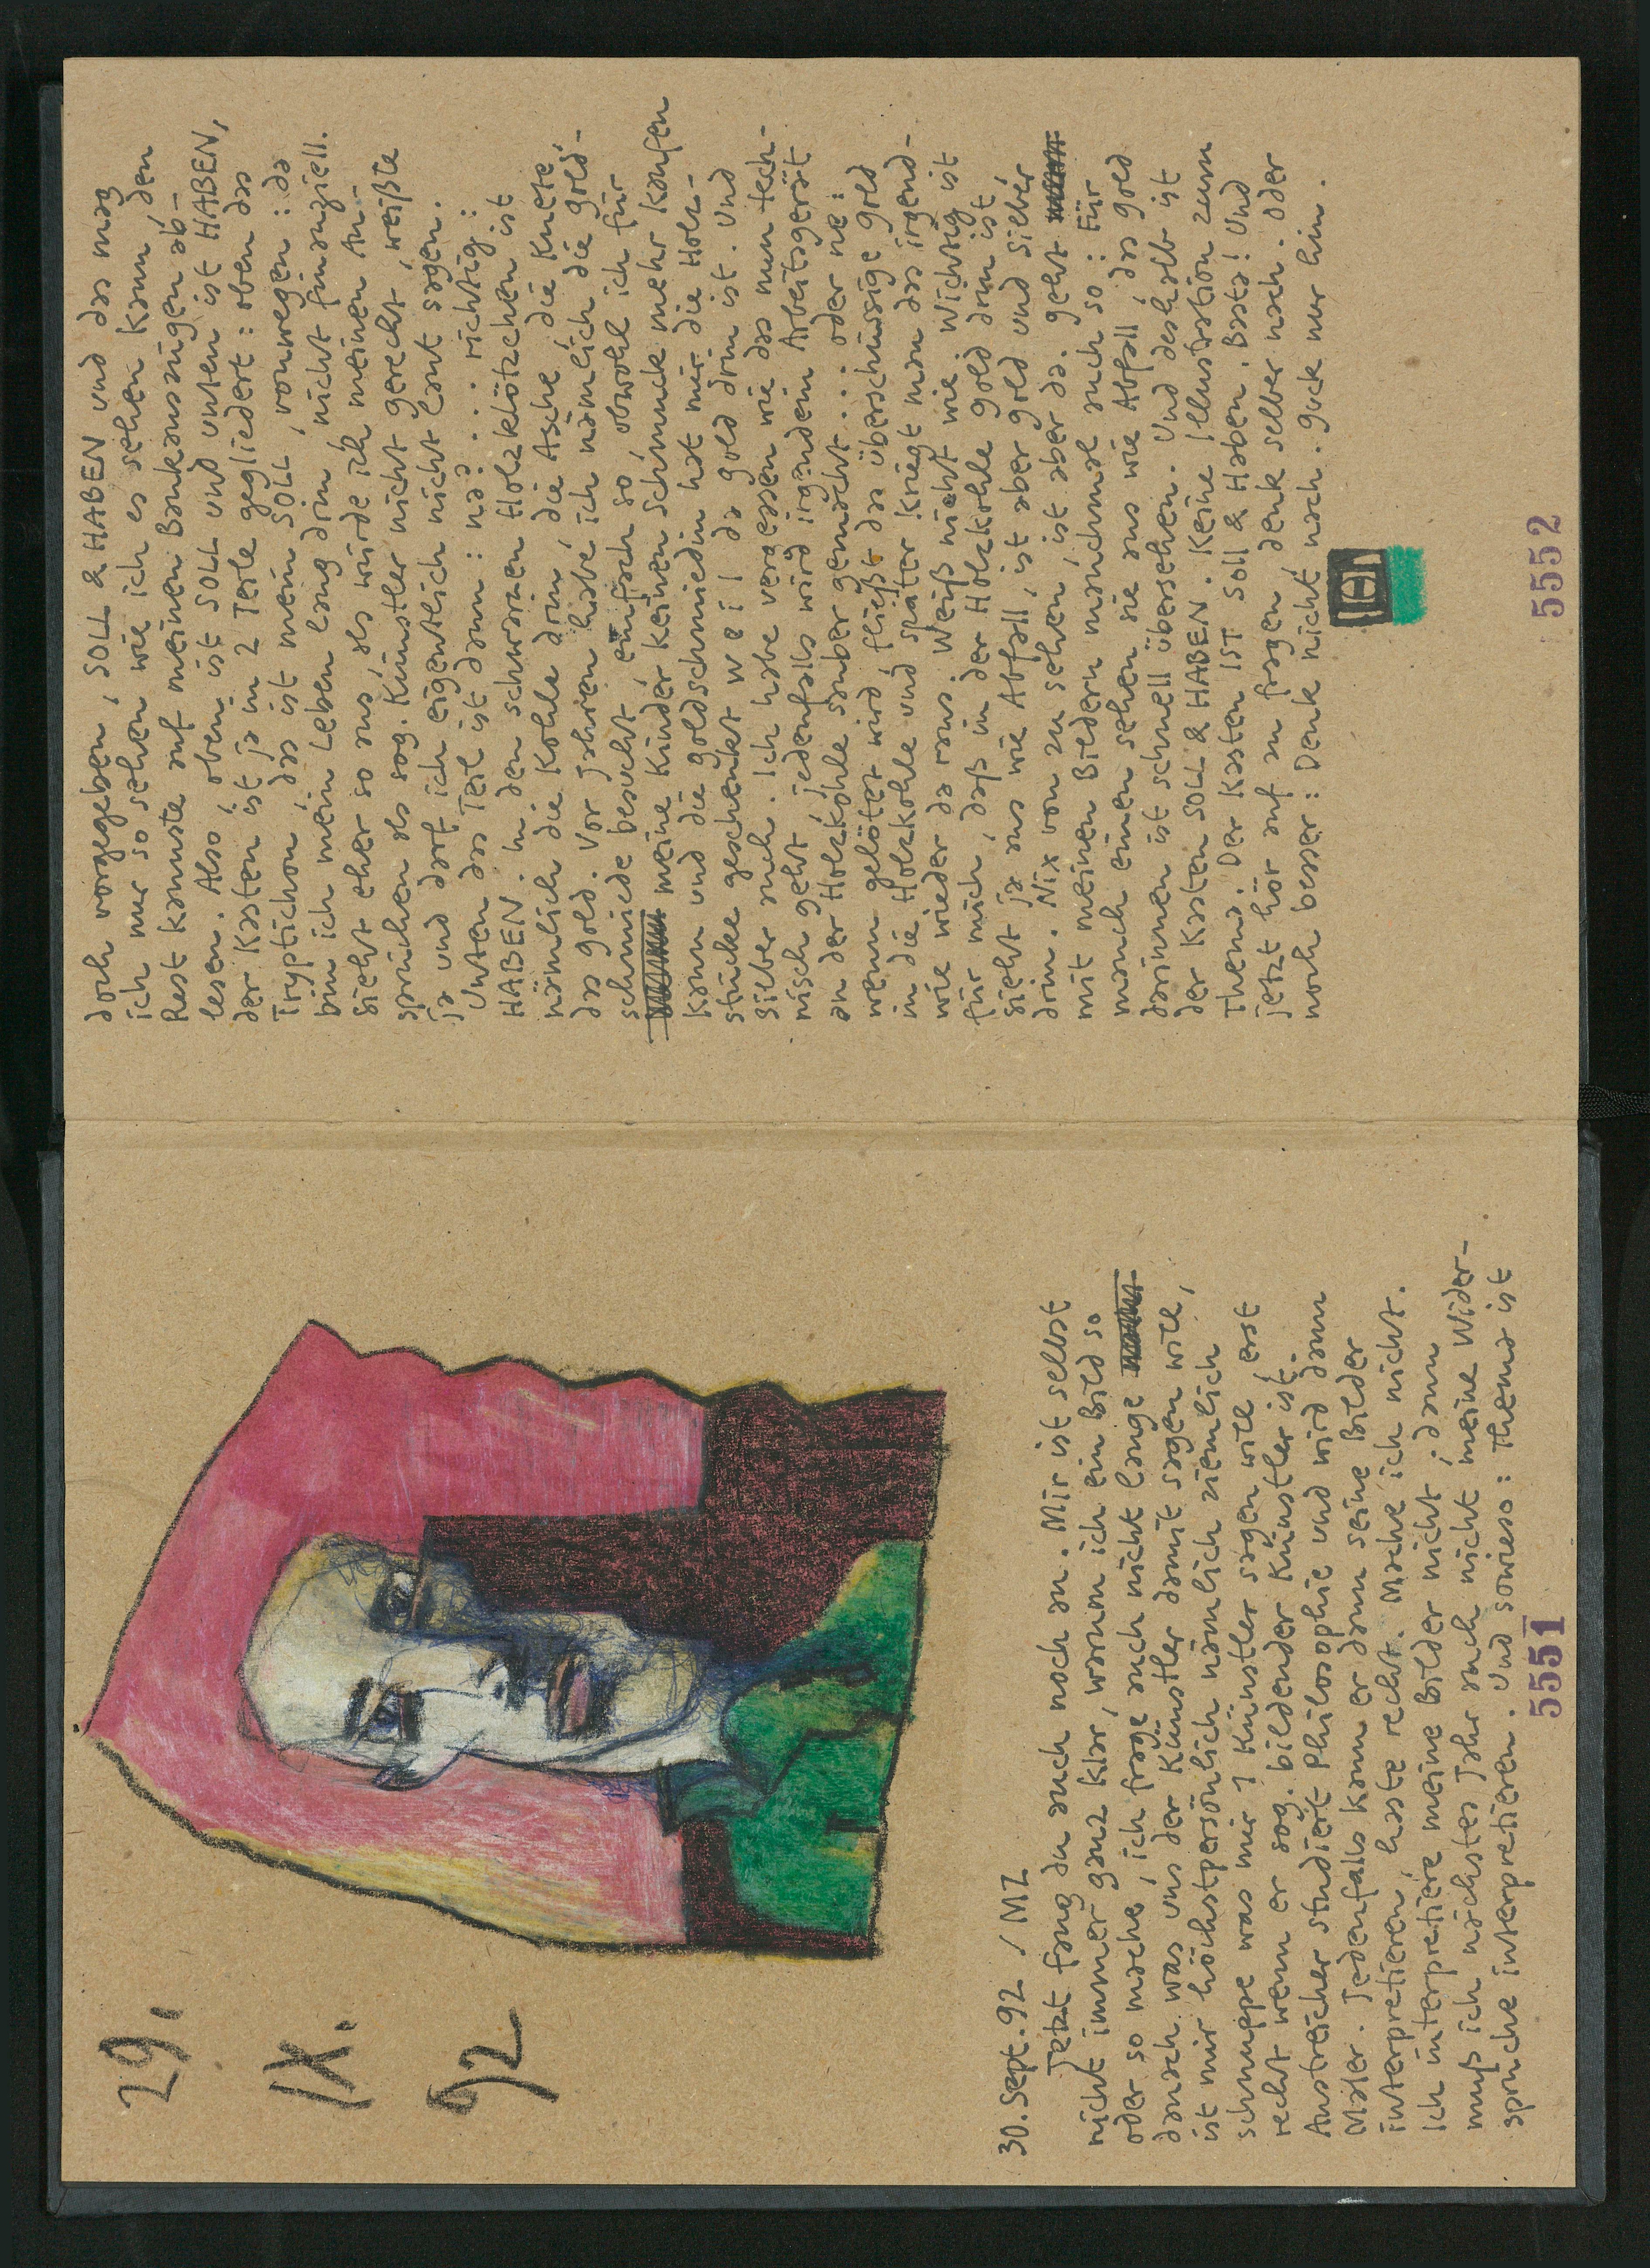 29.
IX.
92
30. Sept. 92 / MZ
Jetzt fang du auch noch an. Mir ist selbst
nicht immer ganz klar, warum ich ein Bild so
oder so mache, ich frage auch nicht lange
danach was uns der Künstler damit sagen will,
ist mir höchstpersönlich nämlich ziemlich
schnuppe was mir 1 Künstler sagen will, erst
recht wenn er sog. bildender Künstler ist.
Anstreicher studiert Philosophie und wird dann
Maler. Jedenfalls kann er dann seine Bilder
interpretieren, haste recht. Mache ich nicht.
Ich interpretiere meine Bilder nicht, dann
muß ich nächstes Jahr auch nicht meine Wider-
sprüche interpretieren. Und sowieso: Thema ist
5551
doch vorgegeben, SOLL & HABEN und das mag
ich nur so sehen wie ich es sehen kann, den
Rest kannste auf meinen Bankauszügen ab-
lesen. Also, oben ist SOLL und unten ist HABEN,
der Kasten ist ja in 2 Teile gegliedert: oben das
Tryptichon, das ist mein SOLL, vonwegen: da
bin ich mein Leben lang drin, nicht finanziell.
Sieht eher so aus, als würde ich meinen An-
sprüchen als sog. Künstler nicht gerecht, weißte
ja und darf ich eigentlich nicht laut sagen.
Unten das Teil ist dann: na? ... richtig:
HABEN. In den schwarzen Holzklötzchen ist
nämlich die Kohle drin, die Asche, die Knete,
das Gold. Vor Jahren habe ich nämlich die Gold-
schmiede besucht, einfach so, obwohl ich für
meine Kinder keinen Schmuck mehr kaufen
kann und die Goldschmiedin hat mir die Holz-
stücke geschenkt w e i l da Gold drin ist. Und
Silber auch. Ich habe vergessen wie das nun tech-
nisch geht, jedenfalls wird irgendein Arbeitsgerät
an der Holzkohle sauber gemacht ... oder ne:
wenn gelötet wird, fließt das überschüssige Gold
in die Holzkohle und später kriegt man das irgend-
wie wieder da raus. Weiß nicht wie. Wichtig ist
für mich, daß in der Holzkohle Gold drin ist,
sieht ja aus wie Abfall, ist aber Gold und Silber
drin. Nix von zu sehen, ist aber da. Geht
mit meinen Bildern manchmal auch so: Für
manch einen sehen sie aus wie Abfall, das Gold
darinnen ist schnell übersehen. Und deshalb ist
der Kasten SOLL & HABEN. Keine Illustration zum
Thema. Der Kasten IST Soll & Haben. Basta! Und
jetzt hör auf zu fragen, denk selber nach. Oder
noch besser: Denk nicht nach. Guck nur hin.
5552